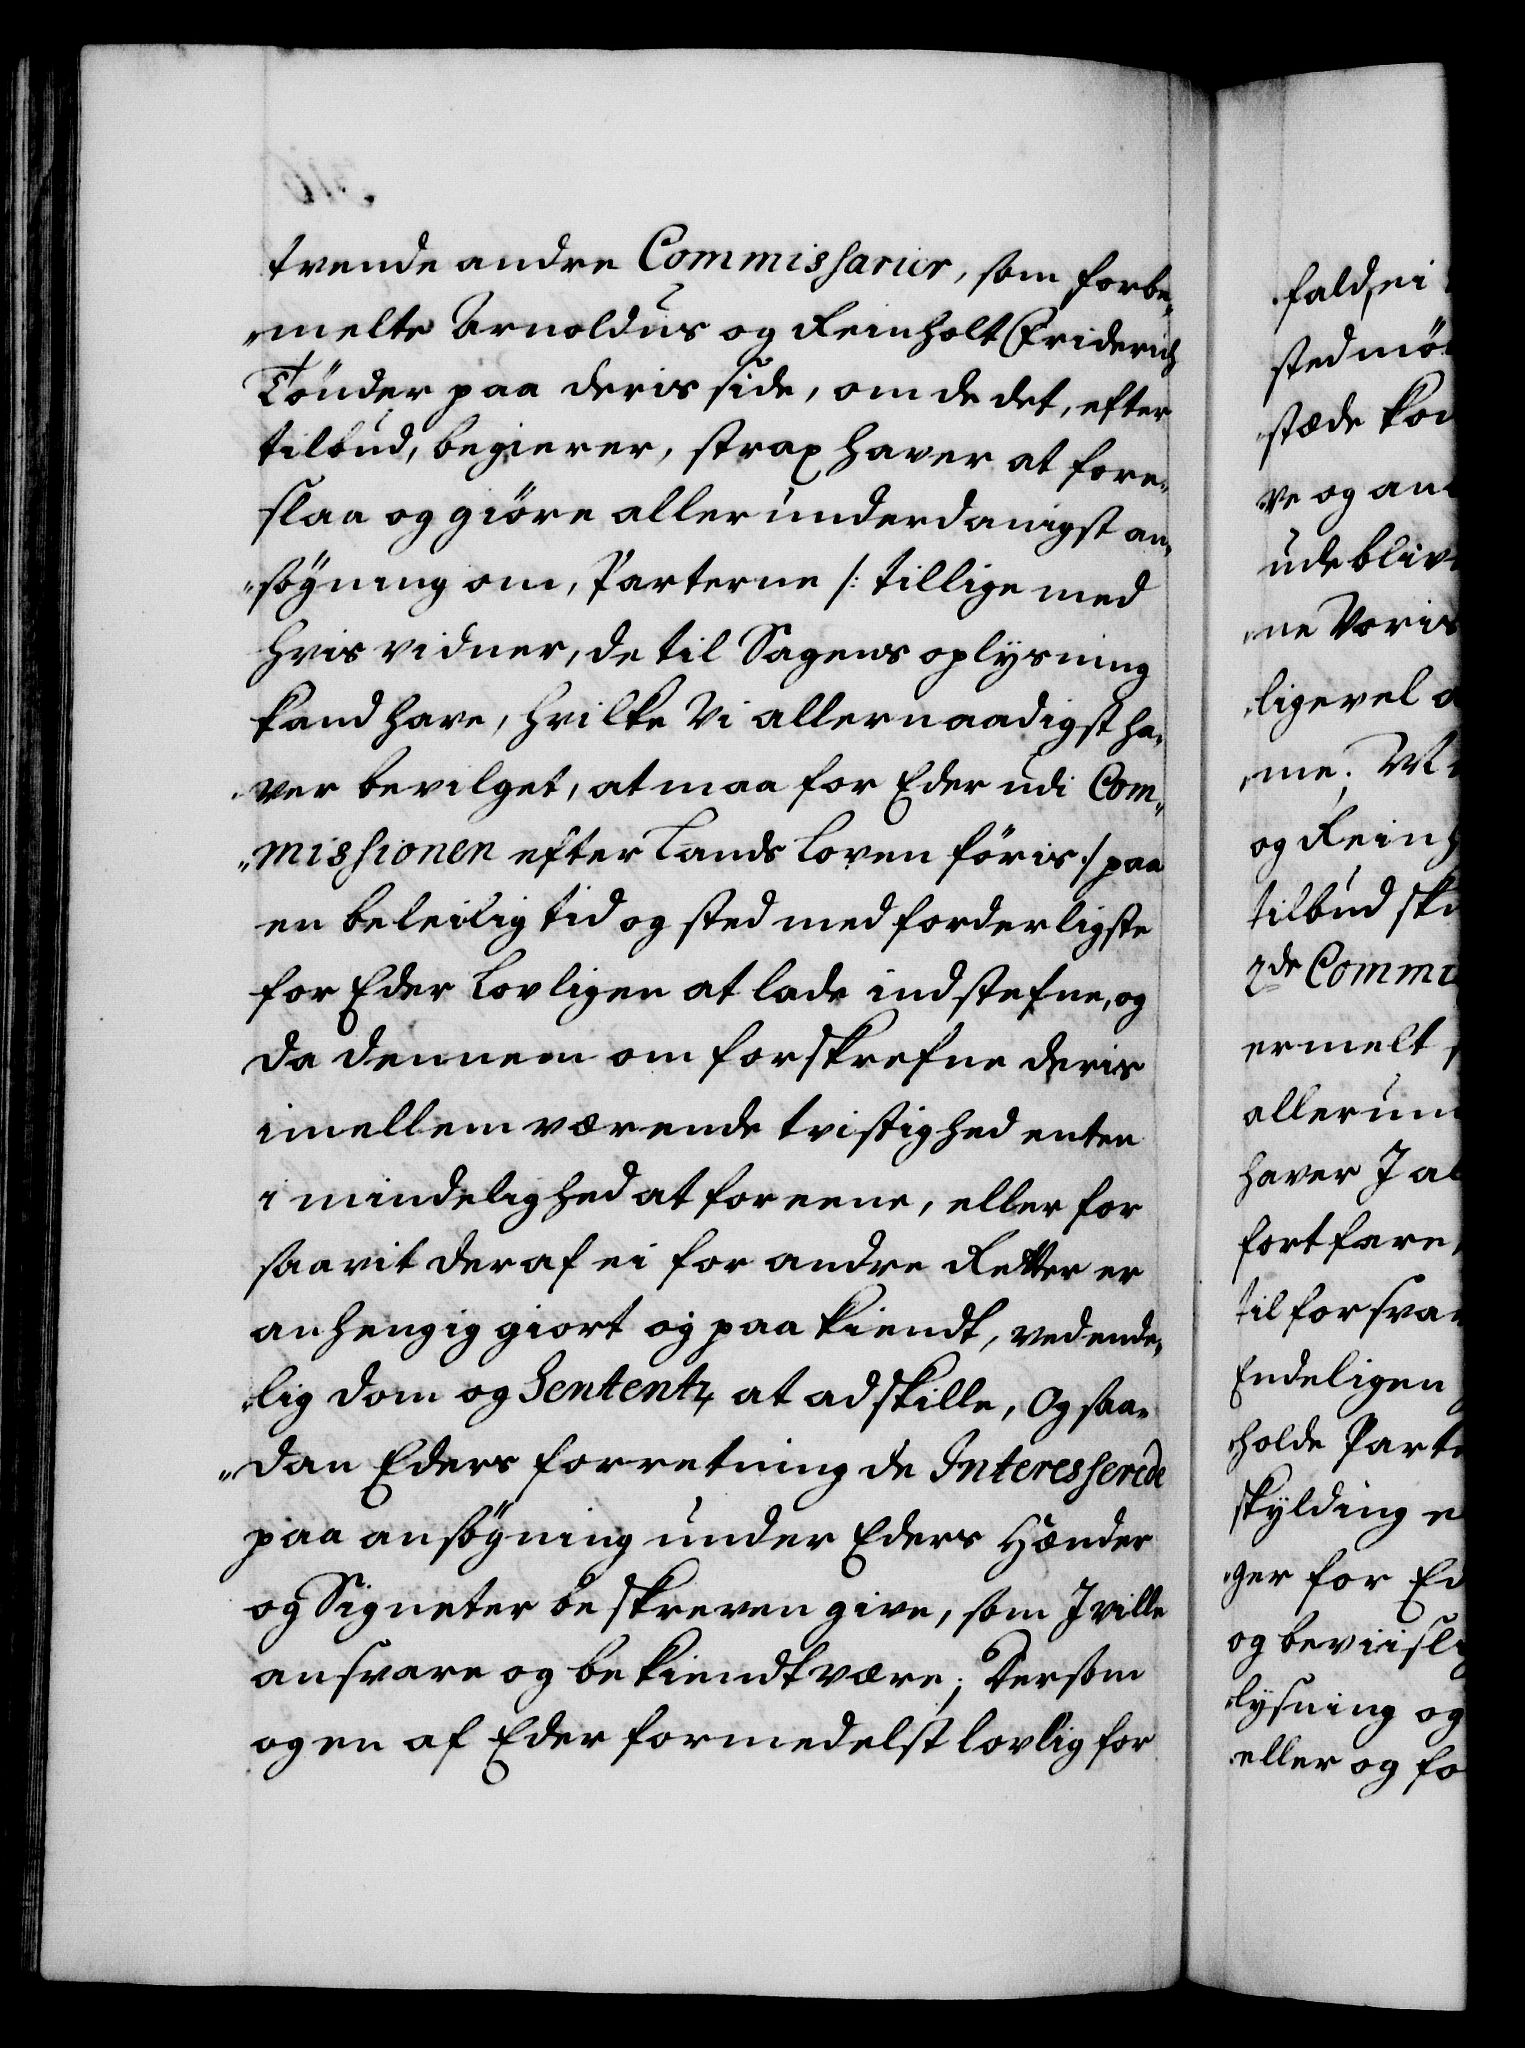 trende andre Commissarier, som forbe„
„melte Arnoldus og Reinholt Friderich
Tönder paa deris side, om de det, efter
tilbud, begierer, strax haver at fore„
slaa og giöre allerunderdanigst an„
„sögning om, Parterne /: tillige med
hvis vidner, de til Sagens oplysning
kand have, hvilke Vi allernaadigst ha„
„ver bevilget, at maa for Eder udi Com„
„missionen efter Lands Loven föris :/ paa
en beleilig tid og sted med forderligste
for Eder Lovligen at lade indstefne, og
da dennem om forskrefne deris
imellem værende tvistighed enten
i mindelighed at foreene, eller for
saavit deraf ei for andre Retter er
anhengig giort og paakiendt, ved ende„
„lig dom og Sententz at adskille, Og saa„
„dan Eders forretning de Interesserede
paa ansögning under Eders Hænder
og Signeter beskreven give, som J ville
ansvare og bekiendt være; Dersom
og en af Eder formedelst lovlig for
fald, ei
sted mö
stæde kom
„ve og an
udebliv
„ne Voris
„ligevel
„me;
og Reinh
tilbud sk
2de Commi
ermelt
allerun
haver J al
fortfare,
til forsvar
Endeligen
„holde Parte
skylding e
„ger for Ed
og beviislig
„lysning og
eller og fo